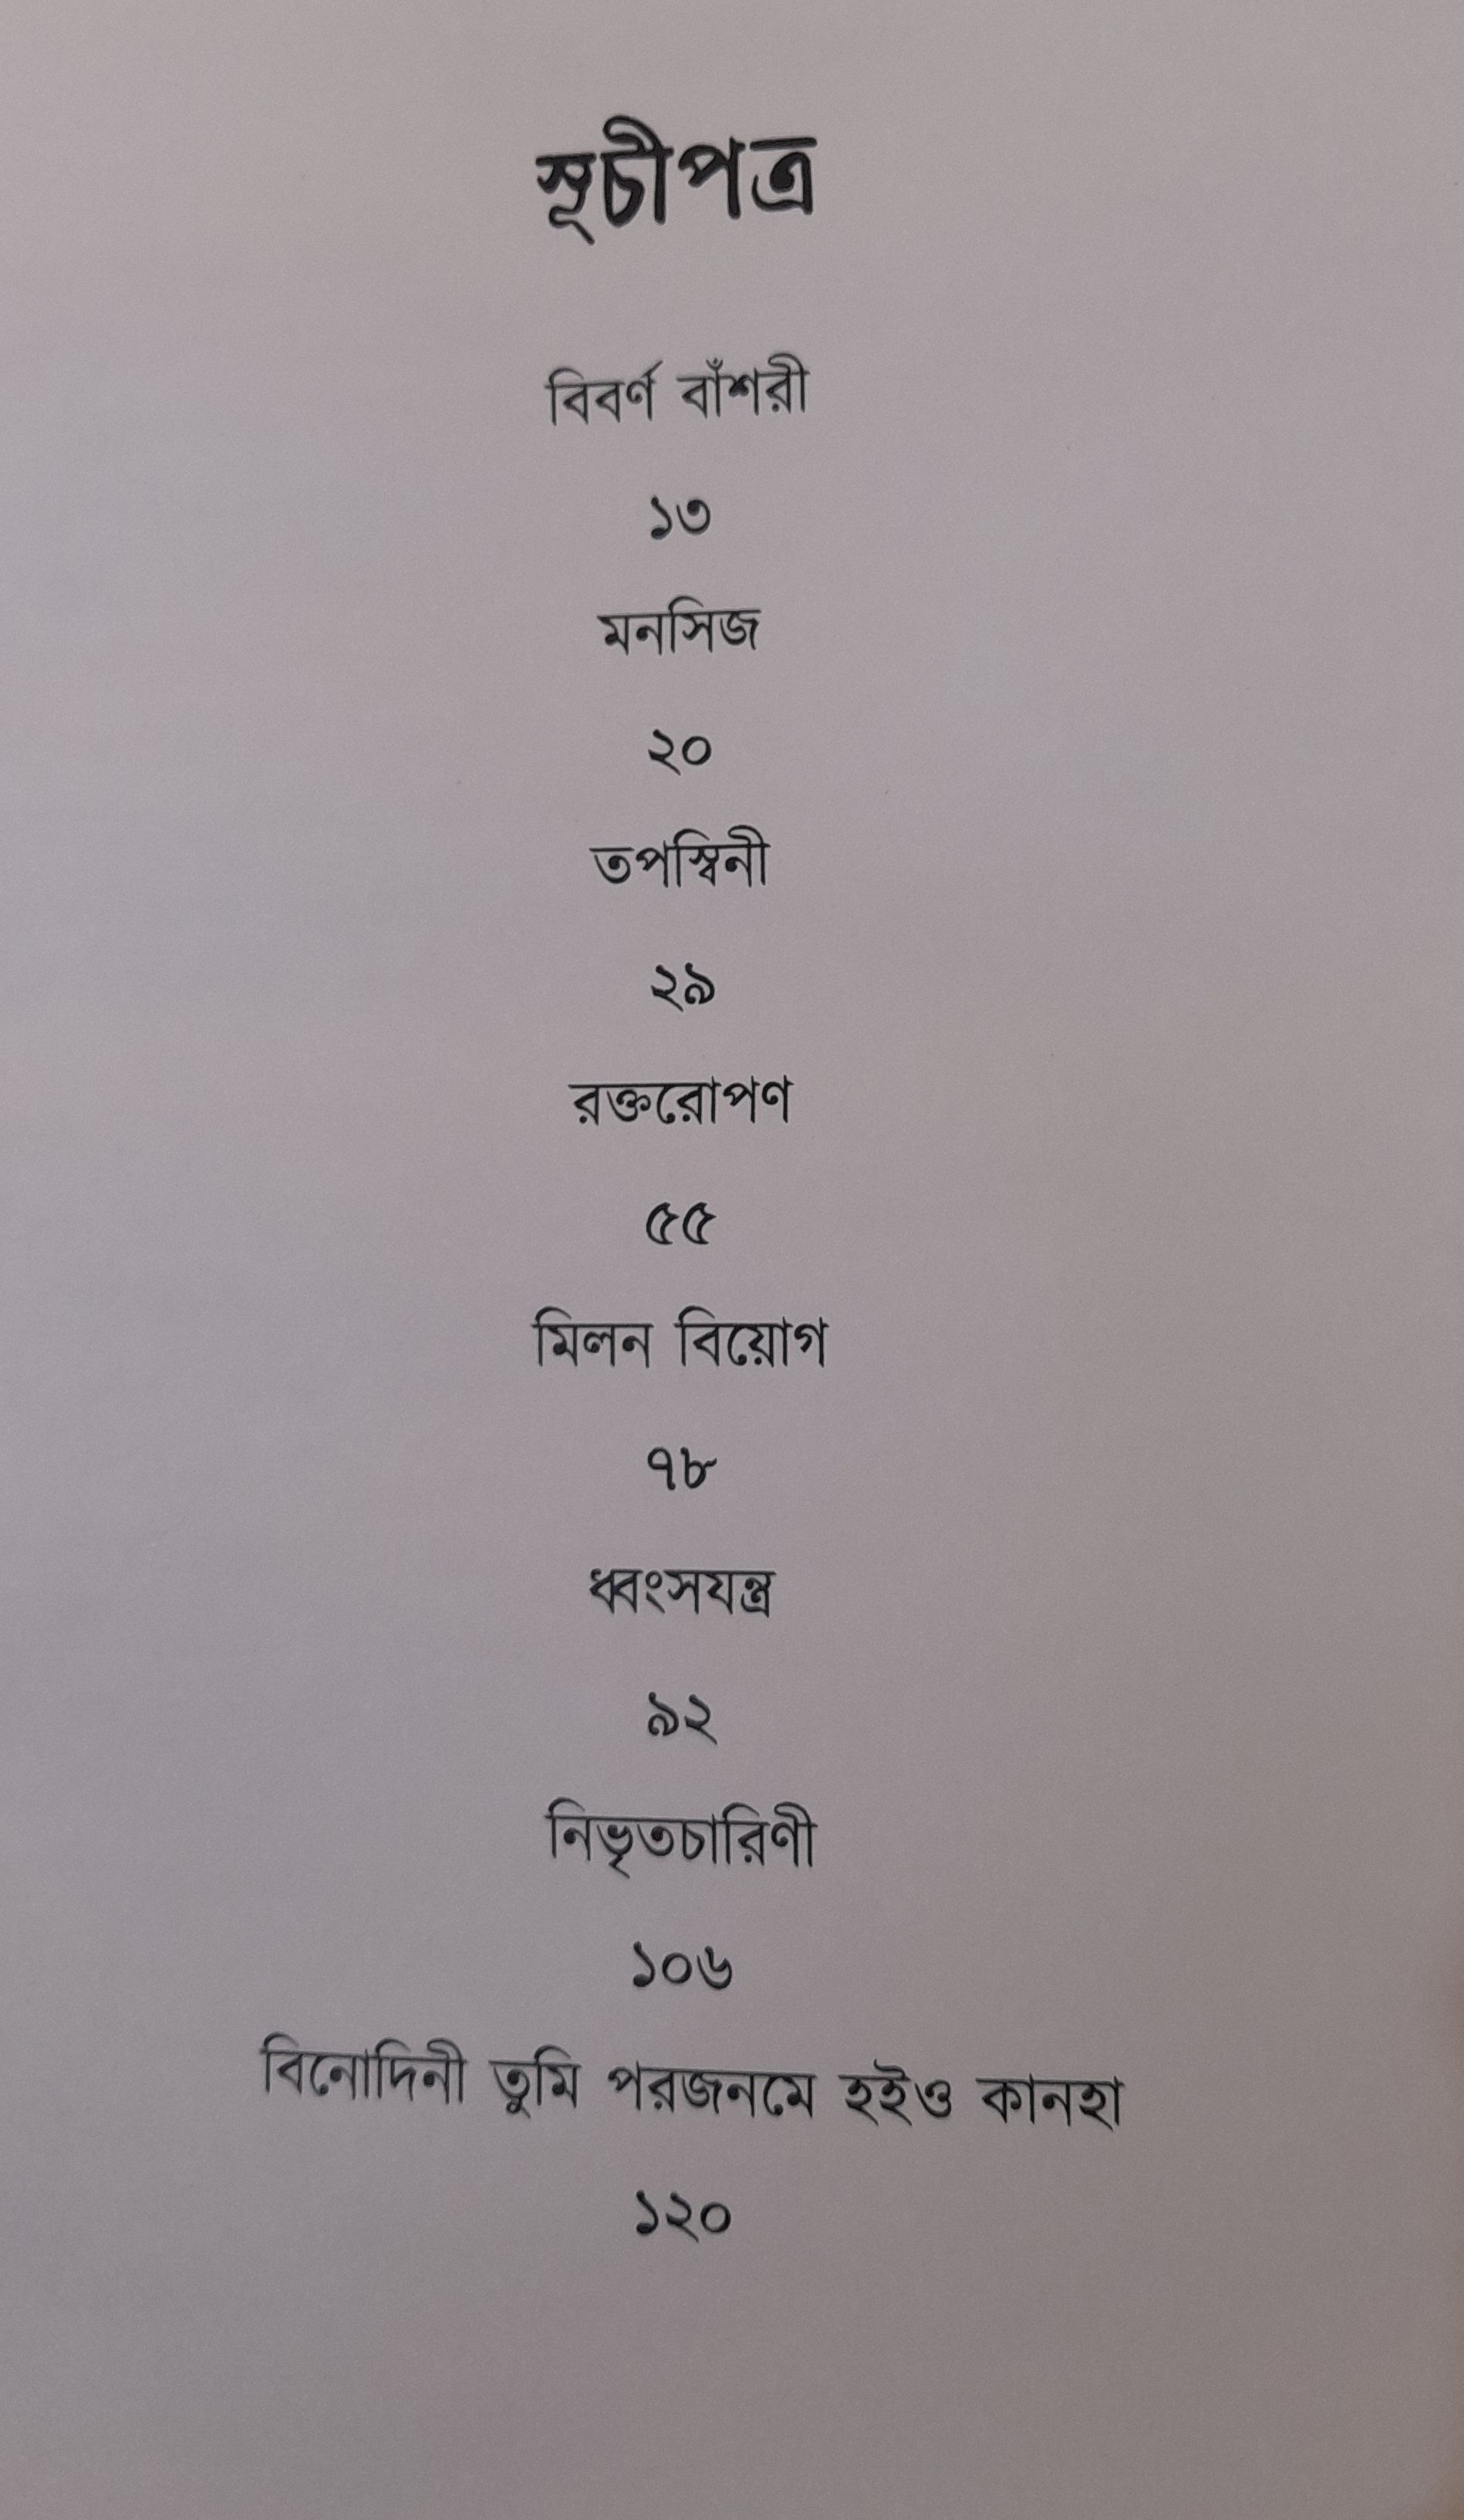 সূচীপত্র
বিবর্ণ বাঁশরী
১৩
মনসিজ
২০
তপস্বিনী
২৯
রক্তরোপণ
৫৫
মিলন বিয়োগ
৭৮
ধ্বংসযন্ত্র
৯২
নিভৃতচারিণী
১০৬
বিনোদিনী তুমি পরজনমে হইও কানহা
১২০